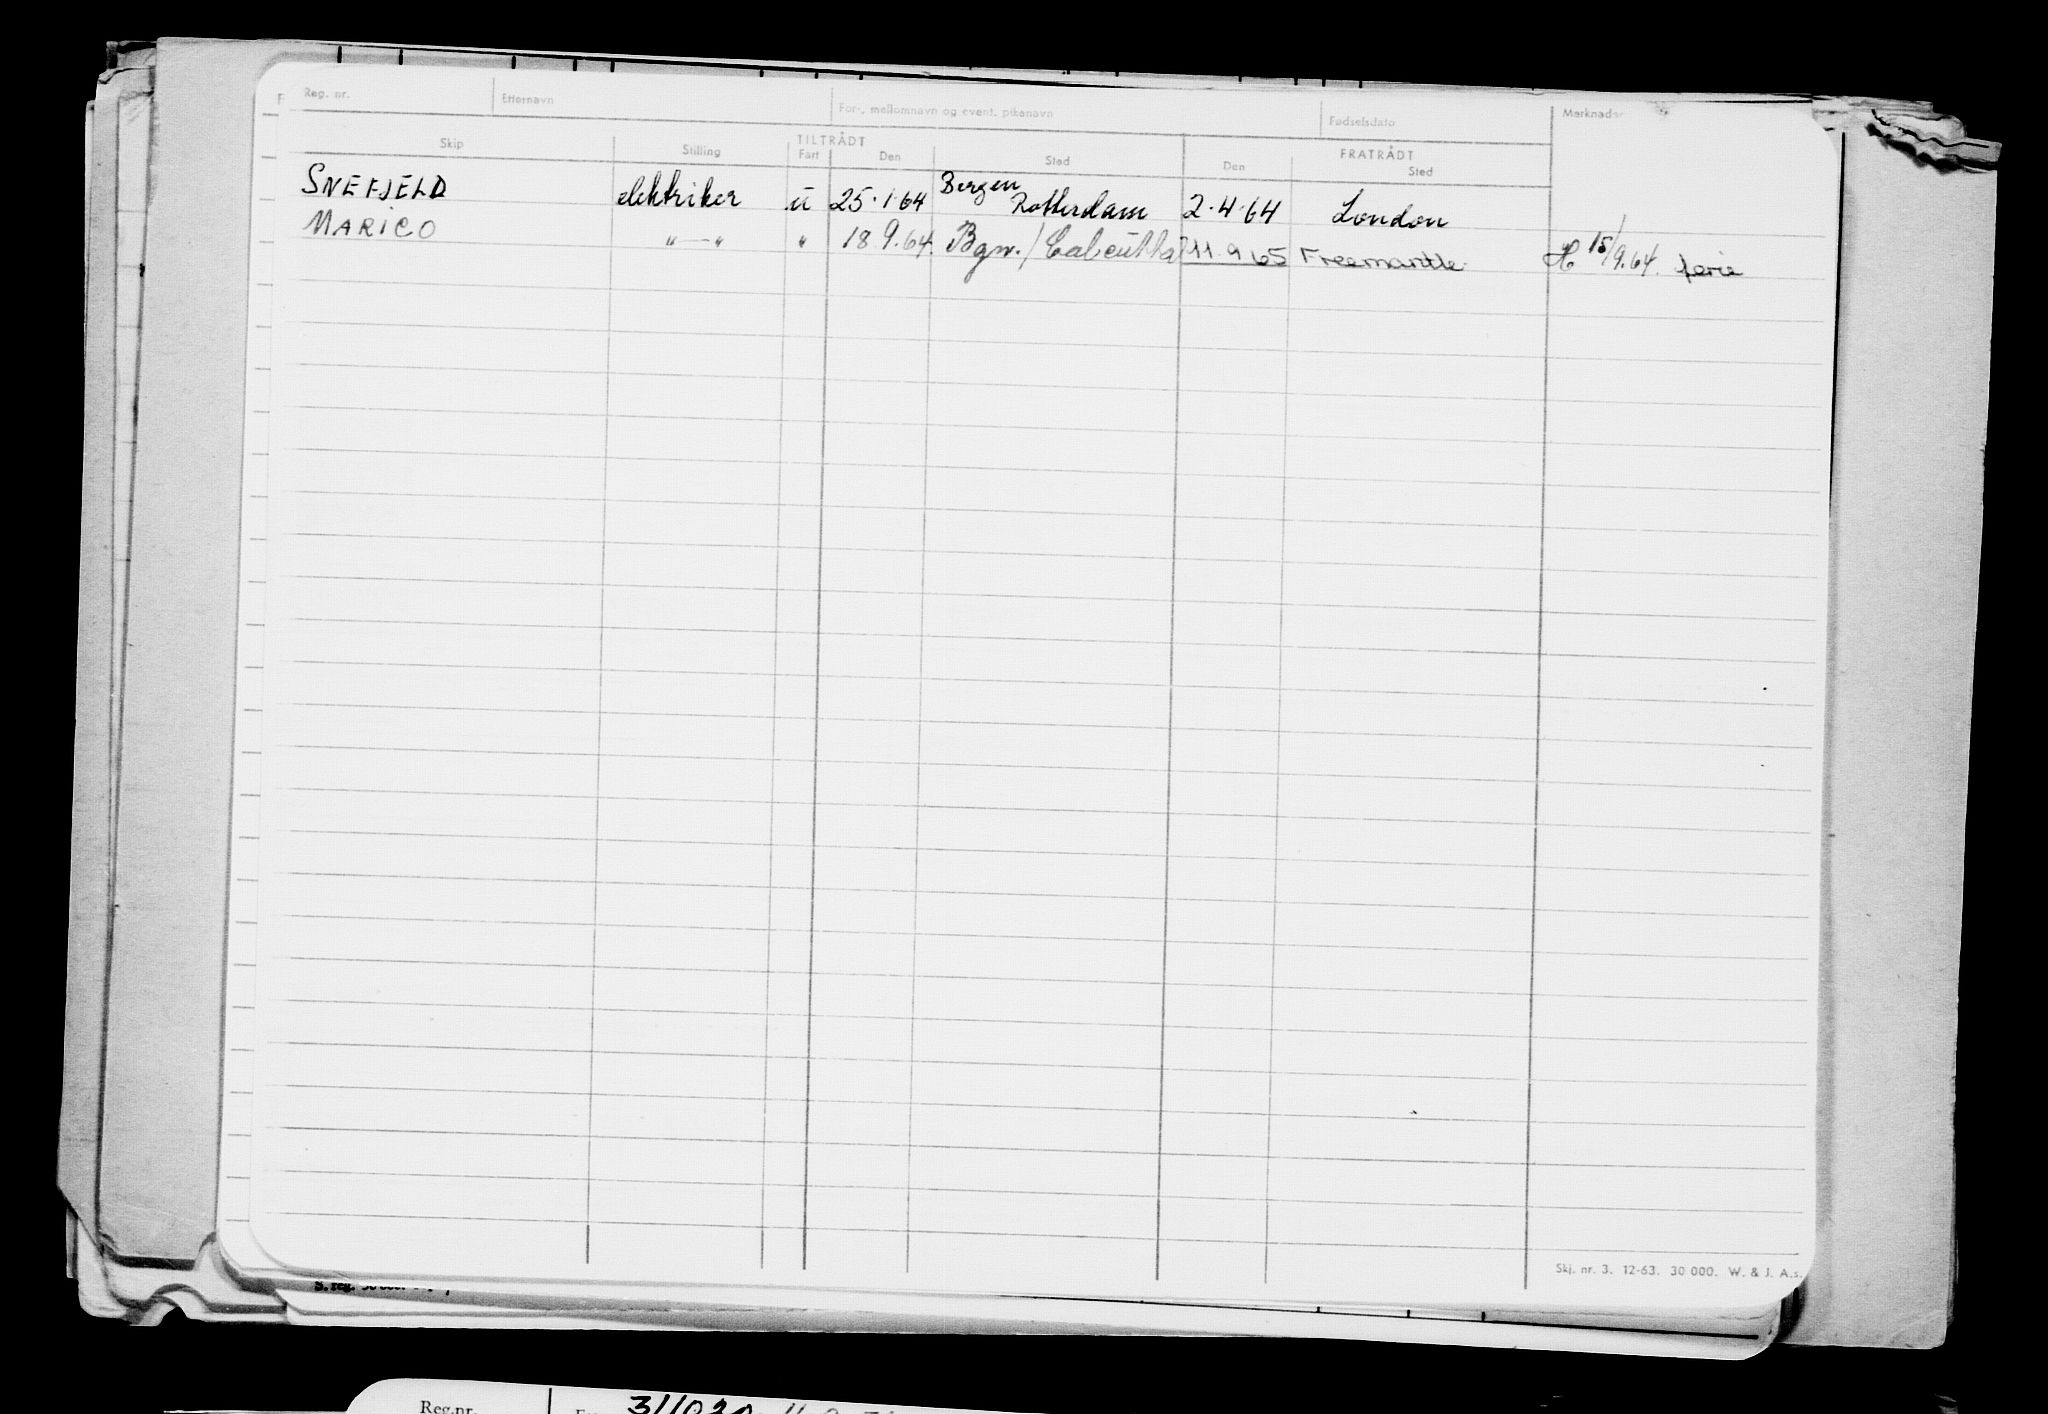 Reg. nr. Etternavn For-, mellomnavn og event. pikenavn Fødselsdato Merknader
TILTRÅDT FRATRÅDT
Skip Stilling Fart Den Sted Den Sted
SNEFJELD elektriker u 25.1.64 Bergen Rotterdam 2.4.64 London
MARICO " — " " 18 9.64. Bgn. / Calcutta 11.9 65 Freemantle. H 15/9.64. ferie
Skj. nr. 3. 12-63. 30 000. W. & J. A.s.
S. reg.
Reg.nr. 311020